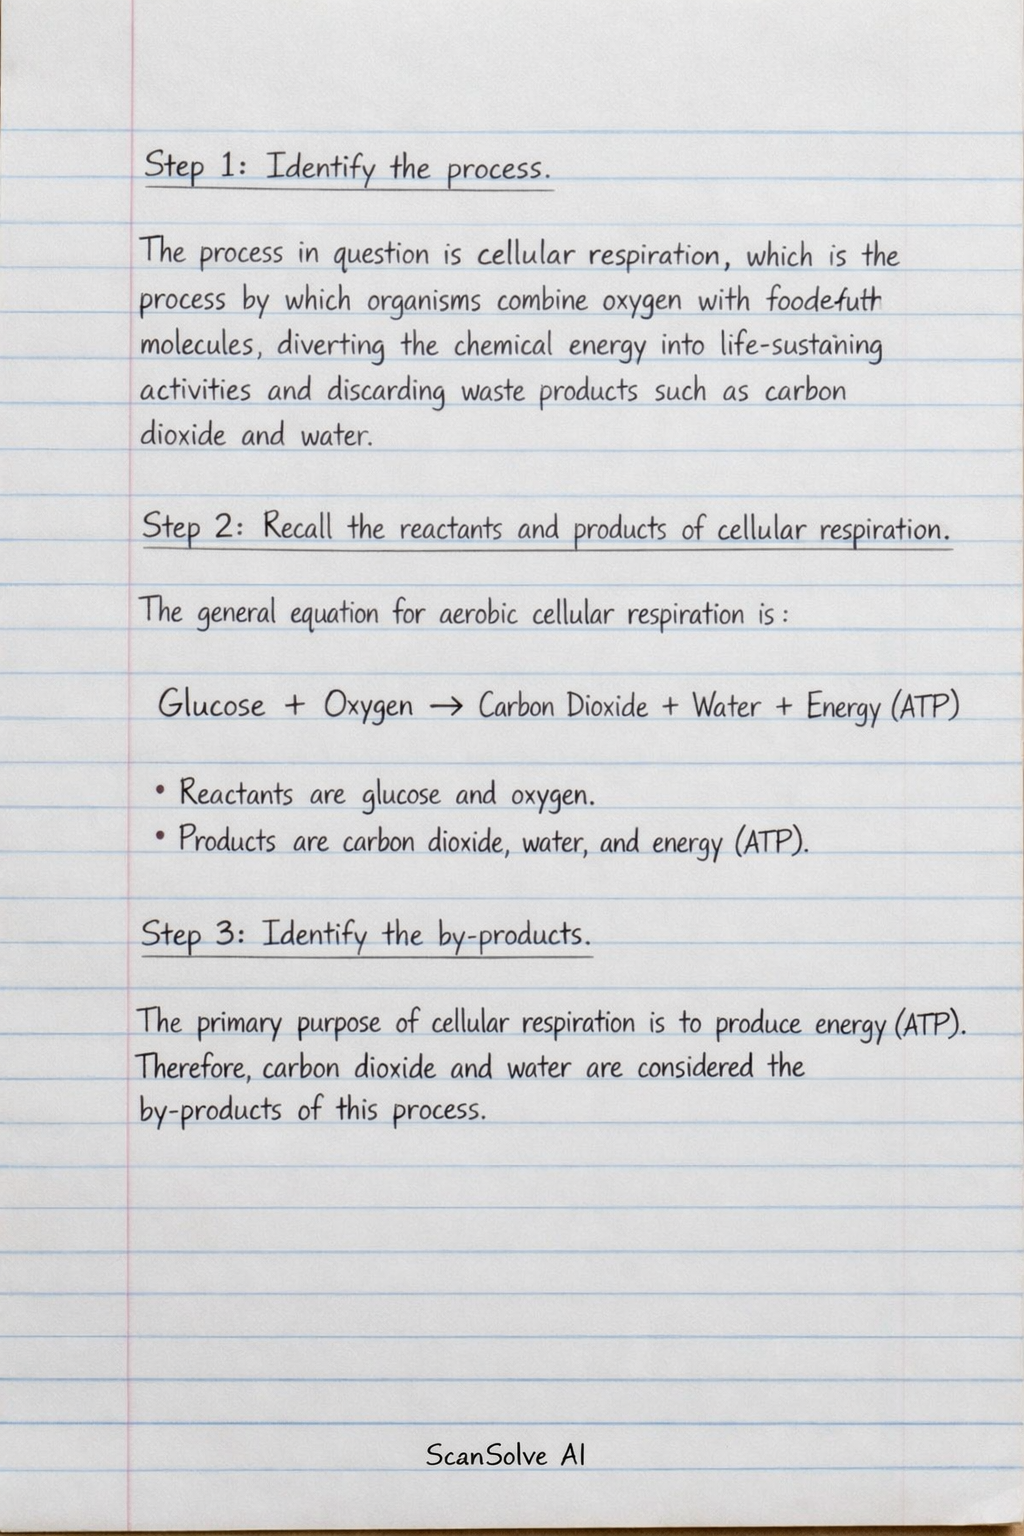 Step 1: Identify the process.
The process in question is cellular respiration, which is the
process by which organisms combine oxygen with
molecules, diverting the chemical energy into life-sustaining
activities and discarding waste products such as carbon
dioxide and water.
Step 2: Recall the reactants and products of cellular respiration.
The general equation for aerobic cellular respiration is:
Glucose + Oxygen → Carbon Dioxide + Water + Energy (ATP)
• Reactants are glucose and oxygen.
• Products are carbon dioxide, water, and energy (ATP).
Step 3: Identify the by-products.
The primary purpose of cellular respiration is to produce energy (ATP).
Therefore, carbon dioxide and water are considered the
by-products of this process.
ScanSolve AI